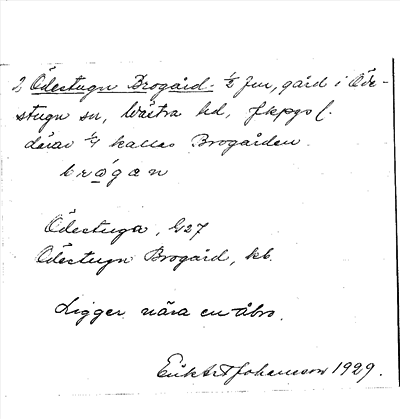 2 Ödestugu Brogård. ½ jm, gård i Öde-
stugu sn, Västra hd, Jkpgs l.
därav ¼ kallas Brogården.
brǫ́gan
Ödestuga, G27
Ödestugu Brogård, kb.
Ligger nära en åbro.
Erik Art Johansson 1929.